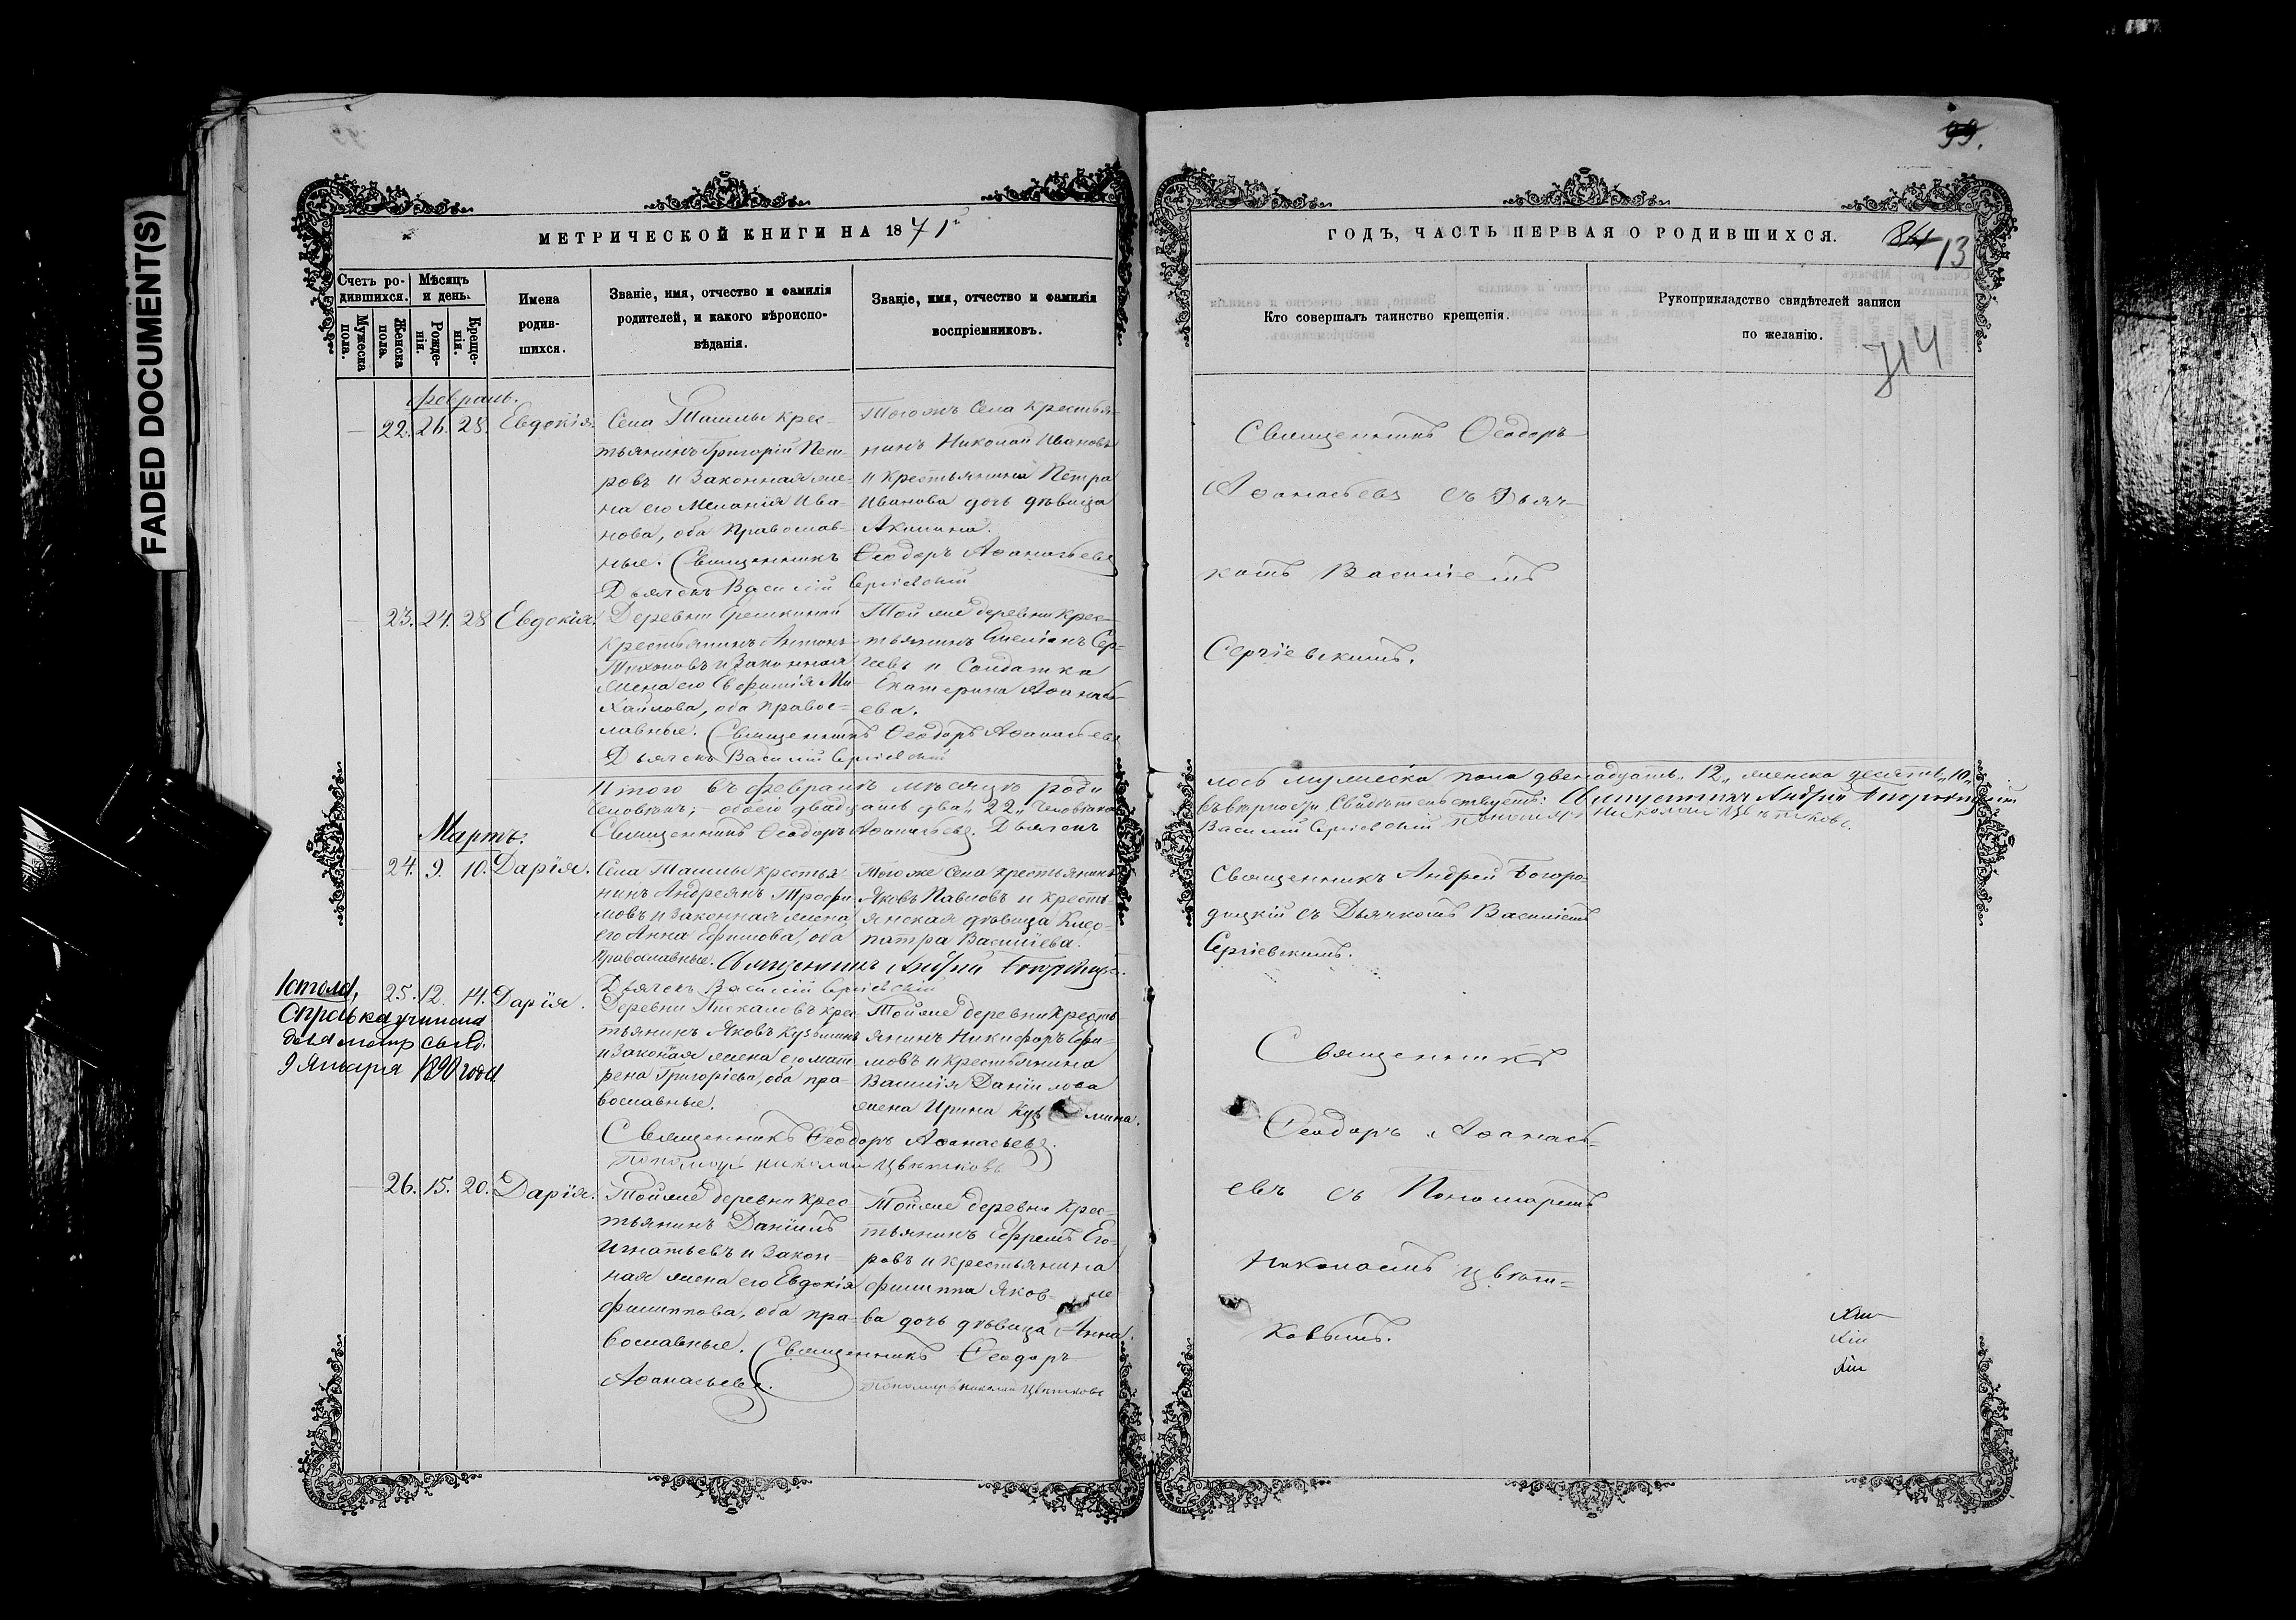 FADED DOCUMENT(S)
99.
МЕТРИЧЕСКОЙ КНИГИ НА 1871
Счетъ ро-
дившихся.
Мѣсяцъ
и день.
Мужеска
пола.
Женска
пола.
Рожде-
нія.
Креще-
нія.
Имена
родив-
шихся.
Званіе, имя, отчество и фамилія
родителей, и какого вѣроиспо-
вѣданія.
Званіе, имя, отчество и фамилія
воспріемниковъ.
Февраль.
22. 26. 28. Евдокія.
Села Ташлы крес-
тьянинъ Григорій Пет-
ровъ и законная же-
на его Меланія Ива-
нова, оба православ-
ные. Священникъ Ѳеодоръ Аѳанасьевъ
Дьячекъ Василій Сергіевскій
Тогожъ села крестья-
нинъ Николай Ивановъ
и крестьянина Петра
Иванова дочь дѣвица
Акилина.
23. 24. 28. Евдокія.
Деревни
крестьянинъ Антонъ
Тихоновъ и законная
жена его Евфимія Ми-
хайлова, оба правос-
лавные. Священникъ Ѳеодоръ Аѳанасьевъ
Дьячекъ Василій Сергіевскій
Той же деревни крес-
тьянинъ Емеліанъ Сер-
геевъ и солдатка
Екатерина Аѳанась-
ева.
Итого въ февралѣ мѣсяцѣ роди
человѣкъ; обоего двадцать два „22„ человѣка
Священникъ Ѳеодоръ Аѳанасьевъ. Дьячекъ
Мартъ.
24. 9. 10. Дарія.
Села Ташлы крестья-
нинъ Андреянъ Трофи-
мовъ и законная жена
его Анна Ефимова, оба
православные. Священникъ Андрей Богородицкій.
Дьячекъ Василій Сергіевскій
Тогоже села крестьянинъ
Яковъ Павловъ и кресть-
янская дѣвица Клео-
патра Васильева.
1 стола,
Справка учинена
для метр свид.
9 Января 1890 года
25. 12. 14. Дарія.
Деревни Пискаловъ крес-
тьянинъ Яковъ Кузьминъ
и законая жена его Мат-
рена Григорьева, оба пра-
вославные.
Священникъ Ѳеодоръ Аѳанасьевъ.
Пономарь Николай Цвѣтковъ
Тойже деревни кресть-
янинъ Никифоръ Ефи-
мовъ и крестьянина
Василія Данилова
жена Ирина Кузьмина.
26. 15. 20. Дарія.
Тойже деревни крес-
тьянинъ Даніилъ
Игнатьевъ и закон-
ная жена его Евдокія
Филиппова, оба пра-
вославные. Священникъ Ѳеодоръ
Аѳанасьевъ. Пономарь Николай Цвѣтковъ
Тойже деревни крес-
тьянинъ Ефремъ Его-
ровъ и крестьянина
Филиппа Яковле-
ва дочь дѣвица Анна.
ГОДЪ, ЧАСТЬ ПЕРВАЯ О РОДИВШИХСЯ.
13
Кто совершалъ таинство крещенія.
Рукоприкладство свидѣтелей записи
по желанію.
714
Священникъ Ѳеодоръ
Аѳанасьевъ съ Дьяч-
комъ Василіемъ
Сергіевскимъ.
лось мужеска пола двенадцать „12„ женска десять „10„
въ вѣрности свидѣтельствуетъ: Священникъ Андрей Богородицкій
Василій Сергіевскій Пономарь Николай Цвѣтковъ.
Священникъ Андрей Богоро-
дицкій съ Дьячкомъ Василіемъ
Сергіевскимъ.
Священникъ
Ѳеодоръ Аѳанась-
евъ съ Пономаремъ
Николаемъ Цвѣт-
ковымъ.